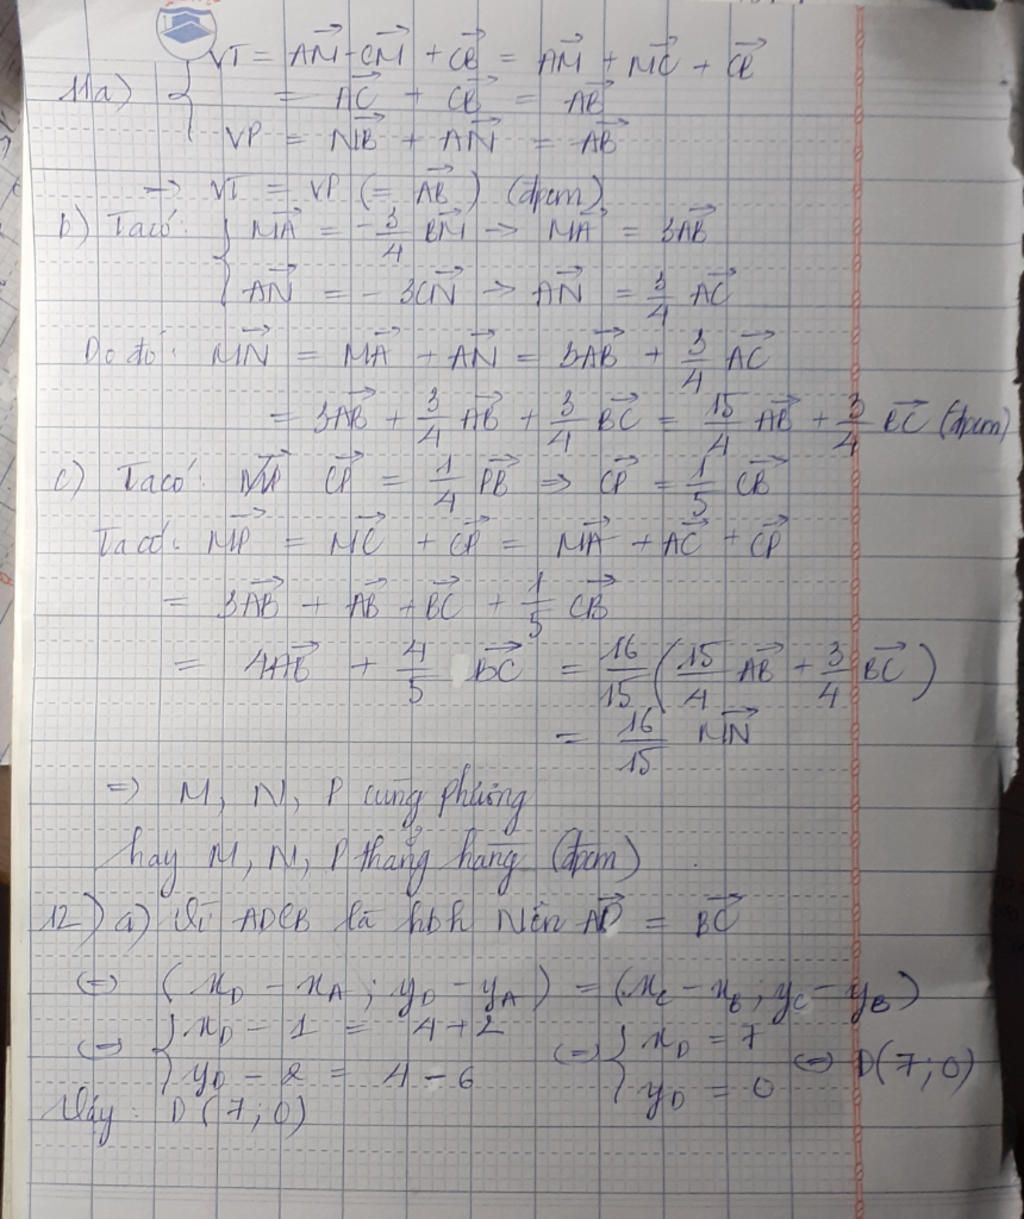 11a) { VT = AM→ - CM→ + CB→ = AM→ + MC→ + CB→
= AC→ + CB→ = AB→
VP = NB→ + AN→ = AB→
→ VT = VP (= AB→) (đpcm)
b) Ta có: { MA→ = -3/4 BM→ → MA→ = 3AB→
AN→ = - 3CN→ → AN→ = 3/4 AC→
Do đó: MN→ = MA→ + AN→ = 3AB→ + 3/4 AC→
= 3AB→ + 3/4 AB→ + 3/4 BC→ = 15/4 AB→ + 3/4 BC→ (đpcm)
c) Ta có: CP→ = 1/4 PB→ => CP→ = 1/5 CB→
Ta có: MP→ = MC→ + CP→ = MA→ + AC→ + CP→
= 3AB→ + AB→ + BC→ + 1/5 CB→
= 4AB→ + 4/5 BC→ = 16/15 (15/4 AB→ + 3/4 BC→)
= 16/15 MN→
=> M, N, P cùng phương
hay M, N, P thẳng hàng (đpcm)
12) a) Vì ADCB là hbh Nên AD→ = BC→
<=> (xD - xA ; yD - yA) = (xC - xB ; yC - yB)
<=> { xD - 1 = 4 + 2 <=> { xD = 7 <=> D(7 ; 0)
yD - 2 = 4 - 6 yD = 0
Vậy: D(7 ; 0)